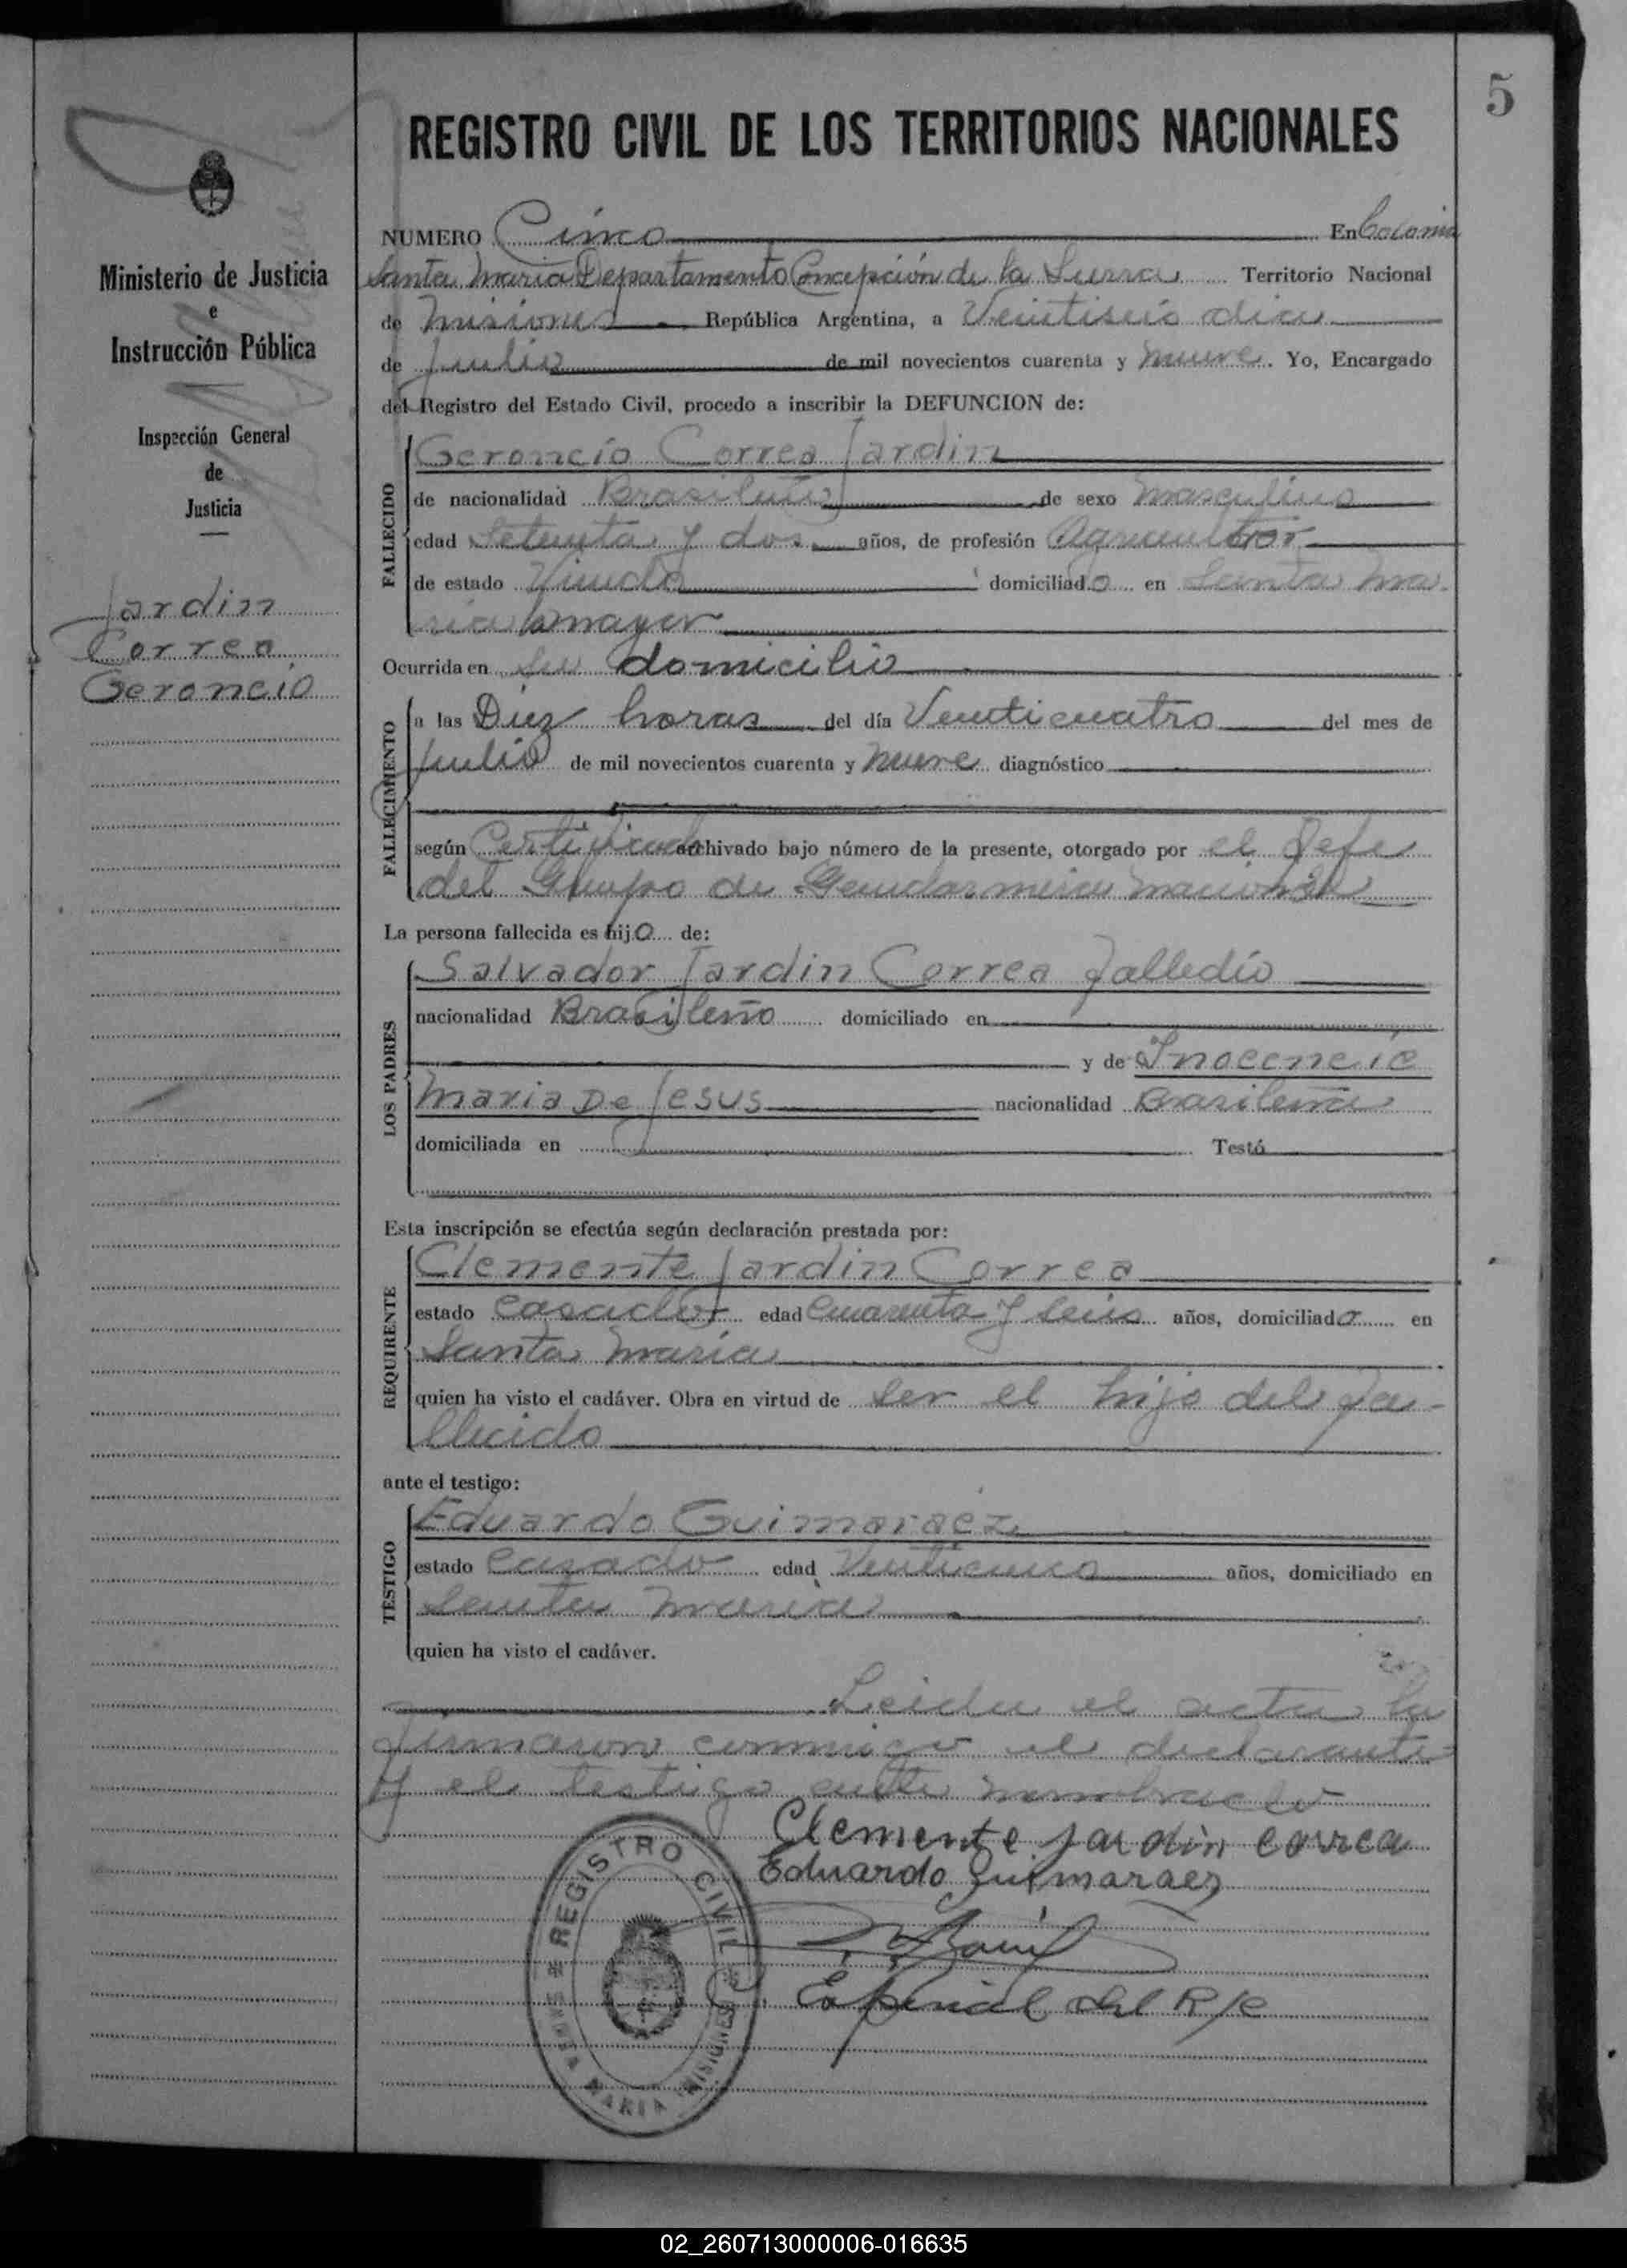 5
REGISTRO CIVIL DE LOS TERRITORIOS NACIONALES
Ministerio de Justicia
e
Instrucción Pública
Inspección General
de
Justicia
Jardin
Correa
Geroncio
NUMERO Cinco En Colonia
Santa Maria Departamento Concepción de la Sierra Territorio Nacional
de Misiones República Argentina, a Veintiseis dias
de Julio de mil novecientos cuarenta y nueve. Yo, Encargado
del Registro del Estado Civil, procedo a inscribir la DEFUNCION de:
FALLECIDO
Geroncio Correa Jardin
de nacionalidad Brasileño de sexo Masculino
edad Setenta y dos años, de profesión Agricultor
de estado Viudo domiciliado en Santa Ma
ria la mayor
Ocurrida en su domicilio
FALLECIMIENTO
a las Diez horas del día Veinticuatro del mes de
Julio de mil novecientos cuarenta y nueve diagnóstico
según Certificado archivado bajo número de la presente, otorgado por el Jefe
del Grupo de Gendarmeria Nacional
La persona fallecida es hijo de:
LOS PADRES
Salvador Jardin Correa
nacionalidad Brasileño domiciliado en
y de Inocencia
Maria De Jesus nacionalidad Brasileña
domiciliada en Testó
Esta inscripción se efectúa según declaración prestada por:
REQUIRENTE
Clemente Jardin Correa
estado Casado edad Cuarenta y seis años, domiciliado en
Santa Maria
quien ha visto el cadáver. Obra en virtud de ser el hijo del fa-
llecido
ante el testigo:
TESTIGO
Eduardo Guimaraez
estado Casado edad Veinticinco años, domiciliado en
Santa Maria
quien ha visto el cadáver.
Leida el acta la
firmaron conmigo el declarante
y el testigo ante nombrado
Clemente jardin correa
Eduardo Guimaraez
del R/C
REGISTRO CIVIL
SANTA MARIA MISIONES
02_260713000006-016635